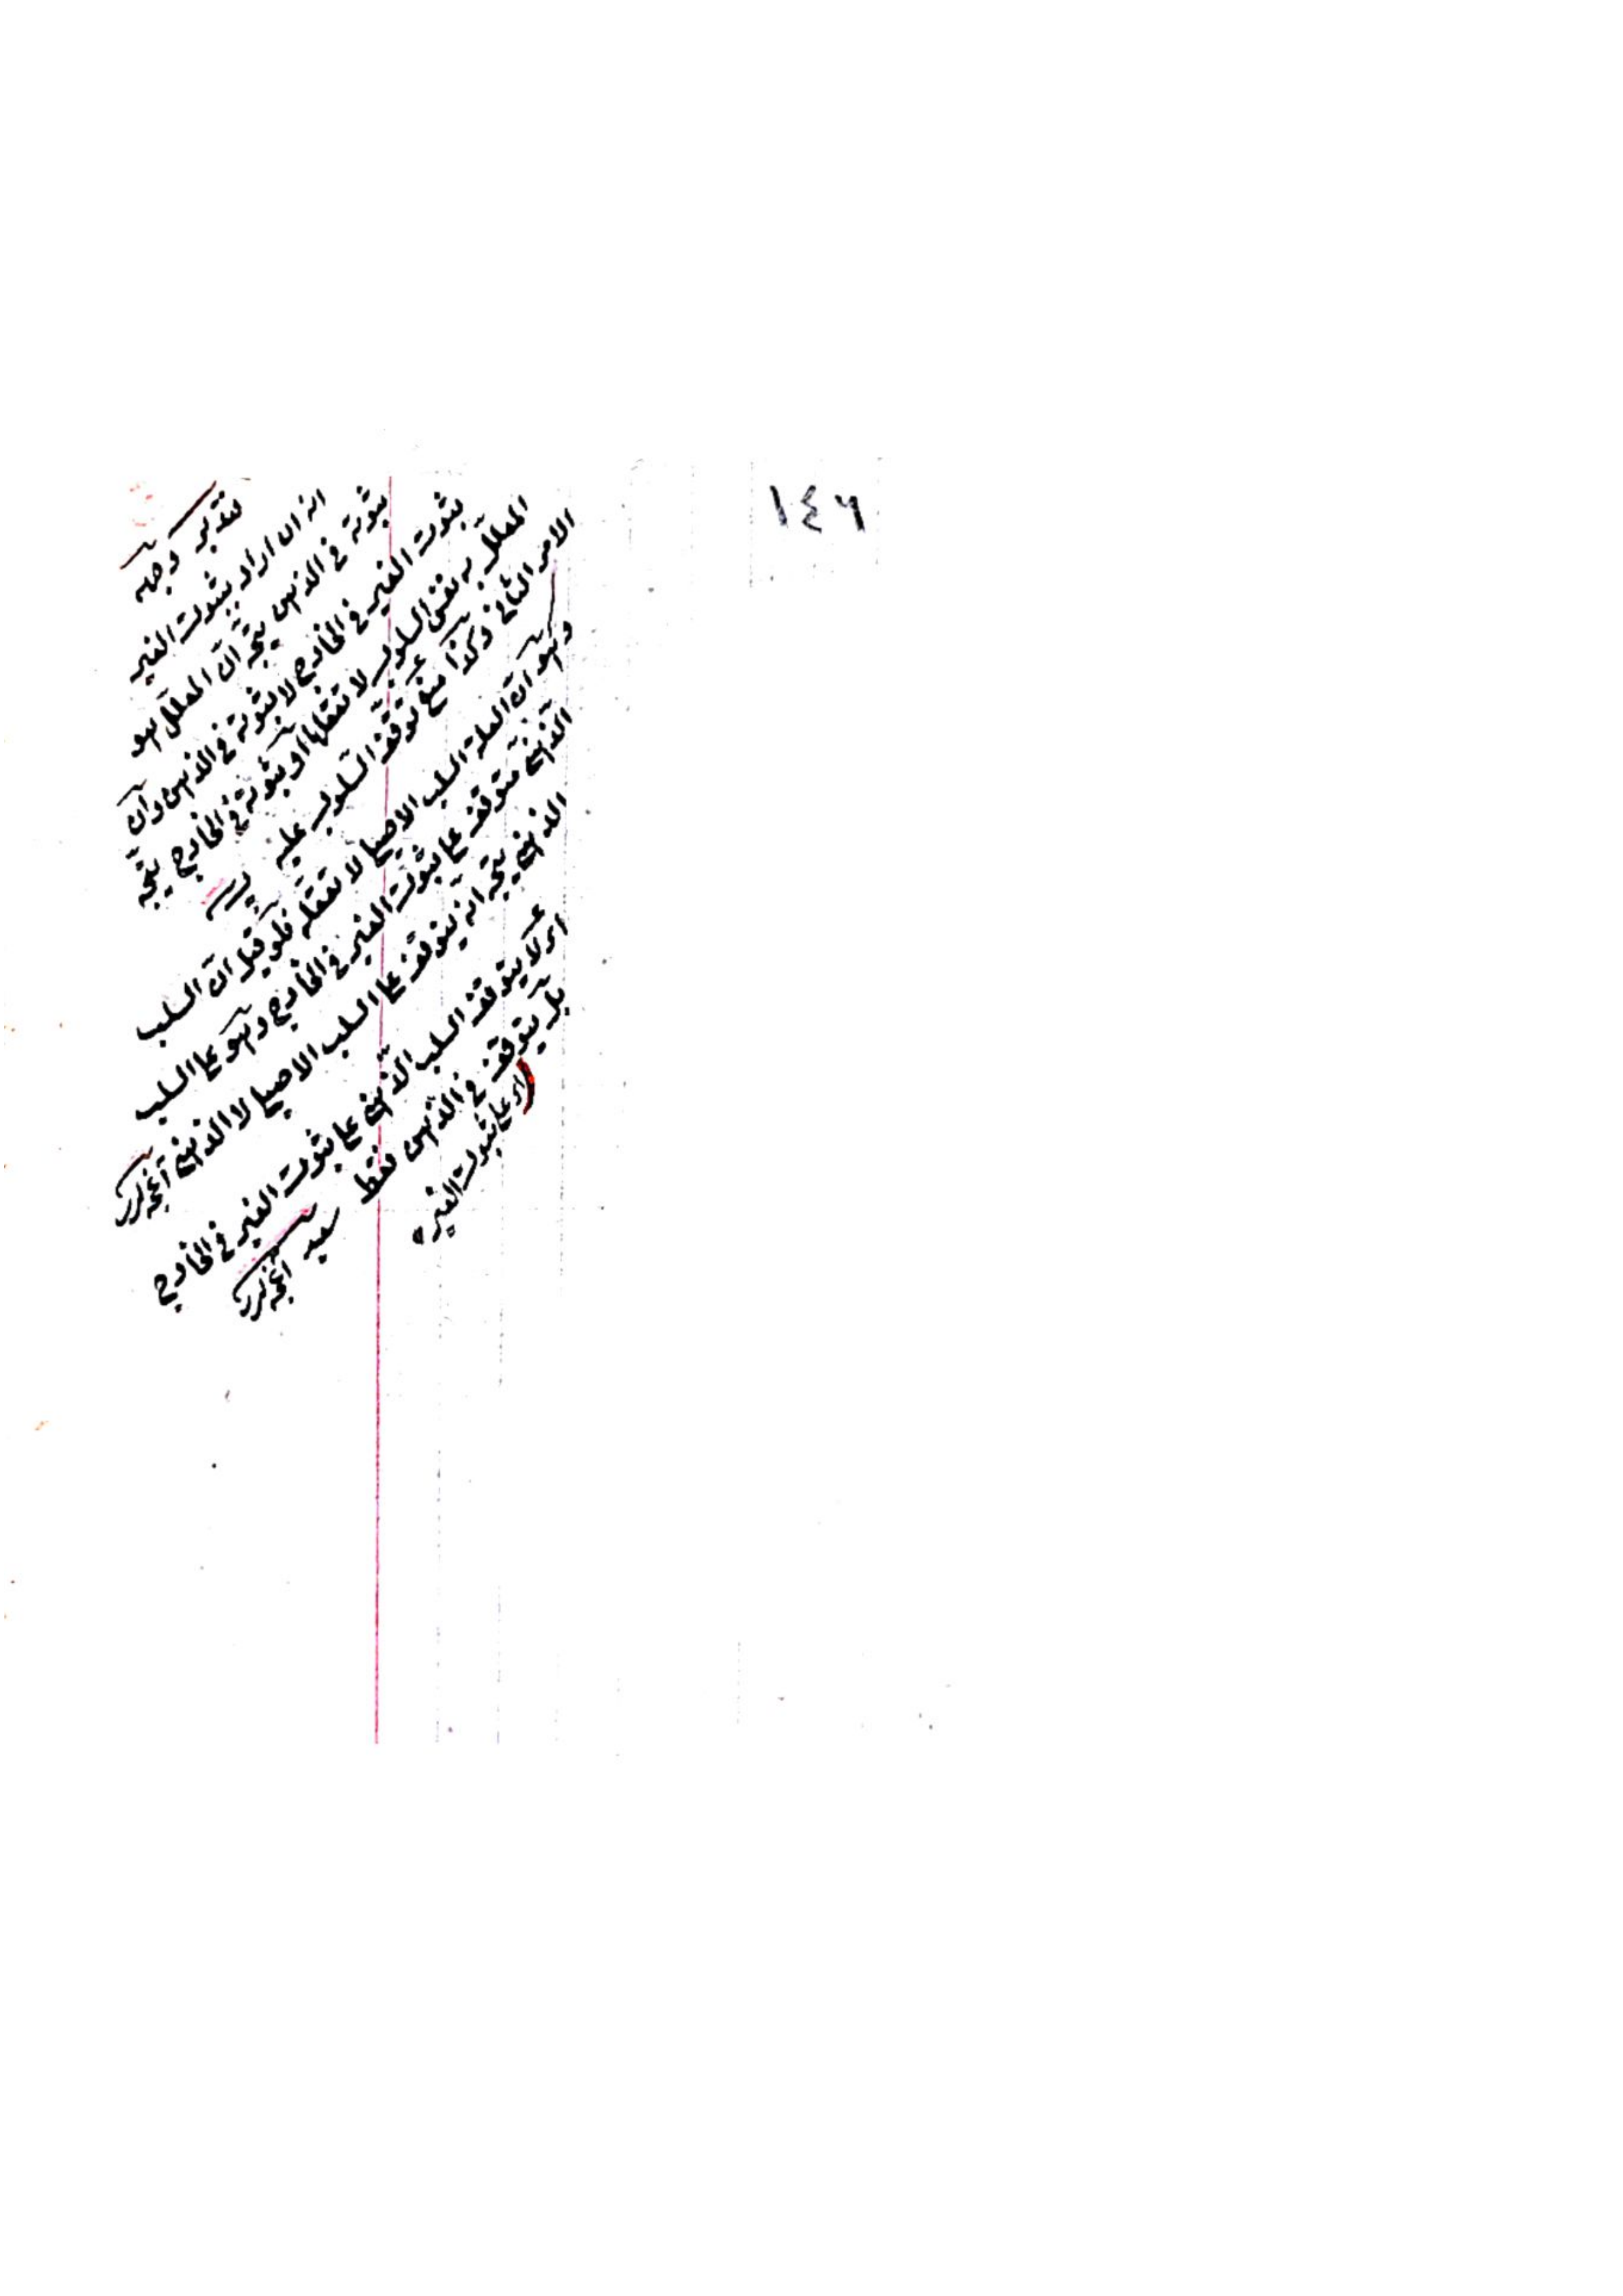 ١٤٦
فتدبر وجهه
انه ان اراد بثبوت الغير
ثبوته في الذهن يتجه آن المعلل هو
ثبوت الغير في الخارج لا ثبوته في الذهن وآن
المعلل به نفس السلوب لا تعقلها او ثبوته في الخارج يتجه
الامر الثاني وكذا منع توقف السلوب عليه
وهو آن العلة السلب الاصيل لا تعقله فلو قيل آن السلب
الذهني يتوقف على ثبوت الغير في الخارج وهو على السلب
الذهني يتجه انه يتوقف على السلب الاصيلي لا الذهني
اى لا يتوقف السلب الذهني على ثبوت الغير في الخارج
بل يتوقف في الذهن فقط
اى على ثبوت الغير